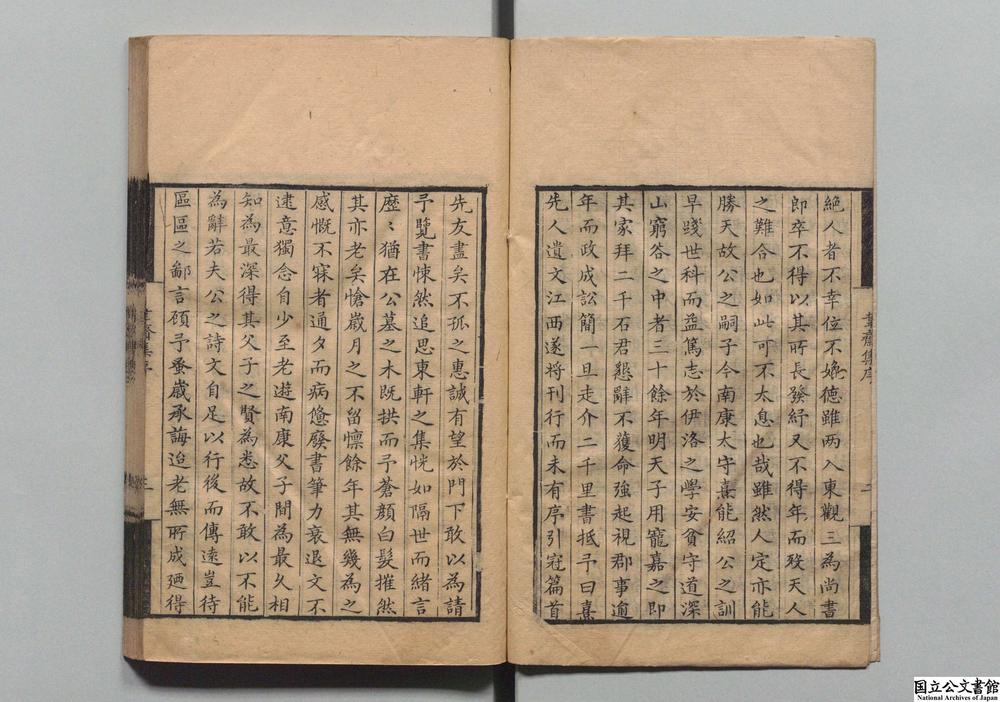 絶人者不幸位不娩德雖两入東觀三為尚書
即卒不得以其所長發紓又不得年而殁天人
之難合也如此可不太息也哉雖然人定亦能
勝天故公之嗣子今南康太守熹能紹公之訓
早踐世科而益篤志於伊洛之學安貧守道深
山窮谷之中者三十餘年明天子用寵嘉之即
其家拜二千石君懇辭不獲命強起視郡事逾
年而政成訟簡一旦走介二千里書抵予曰熹
先人遺文江西遂将刊行而未有序引冠篇首
先友盡矣不孤之惠誠有望於門下敢以為請
予覽書悚然追思東軒之集恍如隔世而緒言
歷〻猶在公墓之木既拱而予蒼顔白髮摧然
其亦老矣愴歲月之不留懔餘年其無幾為之
感慨不寐者通夕而病憊廢書筆力衰退文不
逮意獨念自少至老遊南康父子間為最久相
知為最深得其父子之賢為悉故不敢以不能
為辭若夫公之詩文自足以行後而傳遠豈待
區區之鄙言顧予蚤歲承誨迨老無所成廼得
齋集序
二
国立公文書館
National Archives of Japan